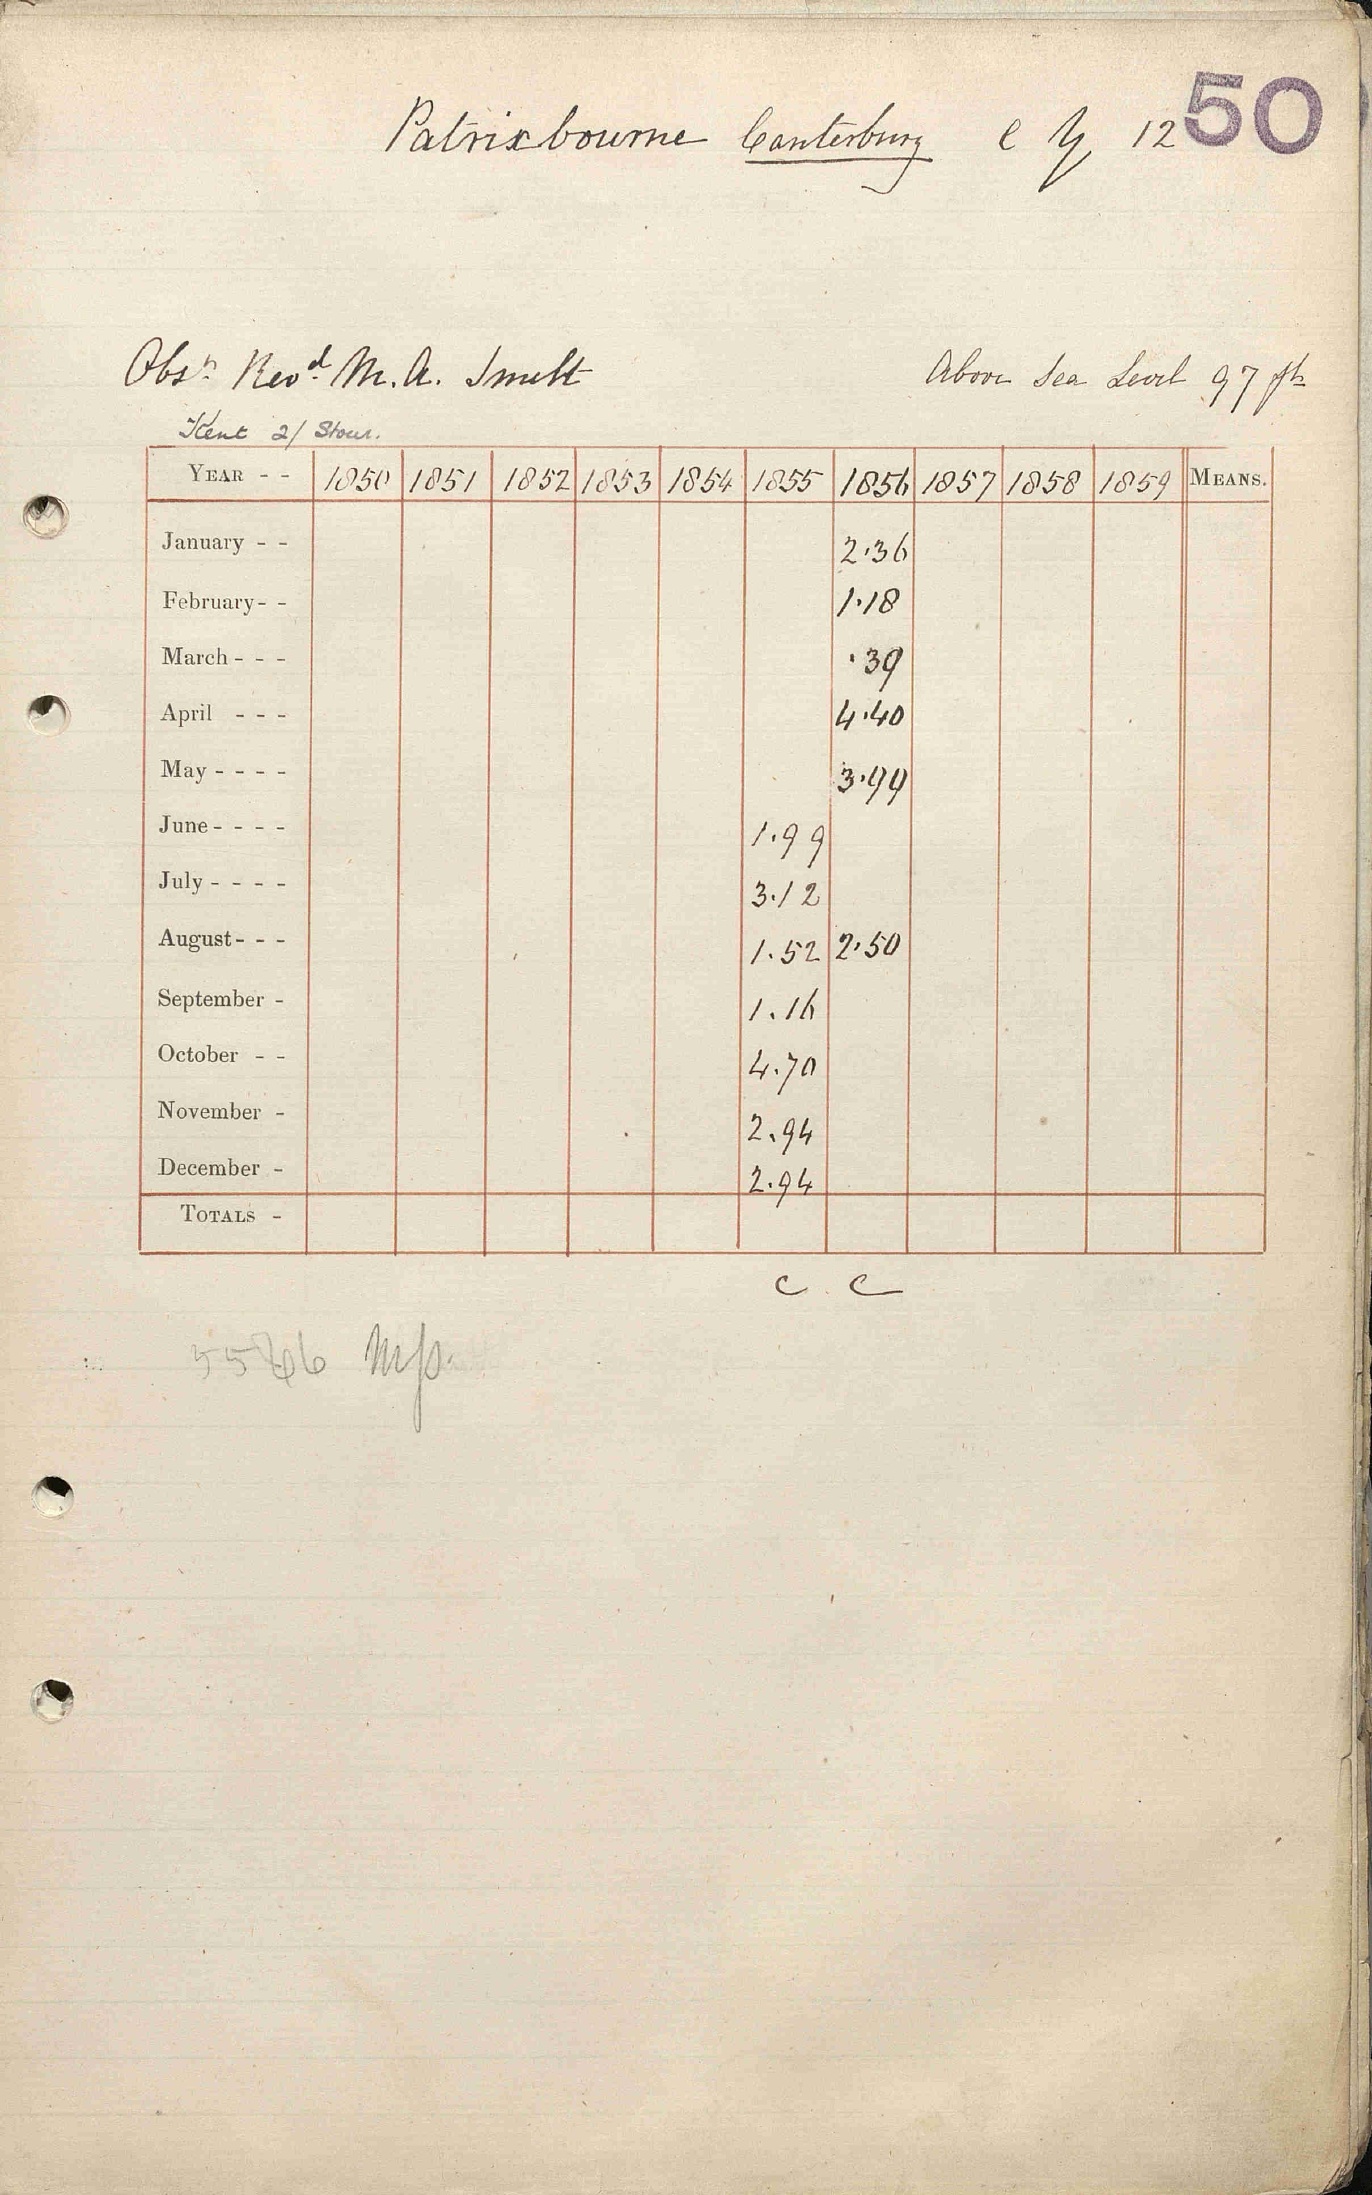 50
Patrixbourne Canterbury C Y 12
Obsr. Revd. M. A. Smelt Above Sea Level 97 ft
Kent 2/ Stour.
YEAR - - 1850 1851 1852 1853 1854 1855 1856 1857 1858 1859 MEANS.
January - - 2.36
February - - 1.18
March - - - .39
April - - - 4.40
May - - - - 3.99
June - - - - 1.99
July - - - - 3.12
August - - - 1.52 2.50
September - 1.16
October - - 4.70
November - 2.94
December - 2.94
TOTALS -
C C